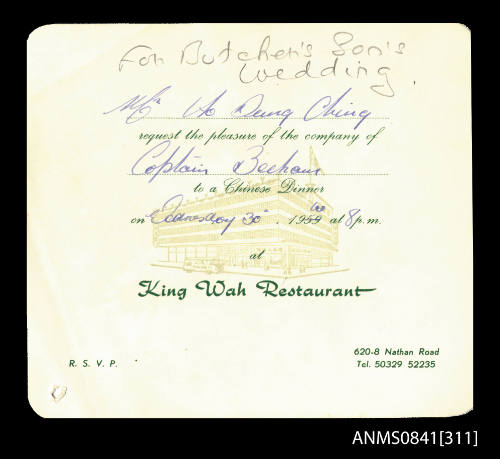 For Butcher's Son's
Wedding.
Ho Dung Ching
request the pleasure of the company of
Captain Beeham
to a Chinese Dinner
on Wednesday 30th. 1959 at 8 p.m.
at
King Wah Restaurant
620-8 Nathan Road
R. S. V. P. Tel. 50329 52235
ANMS0841[311]